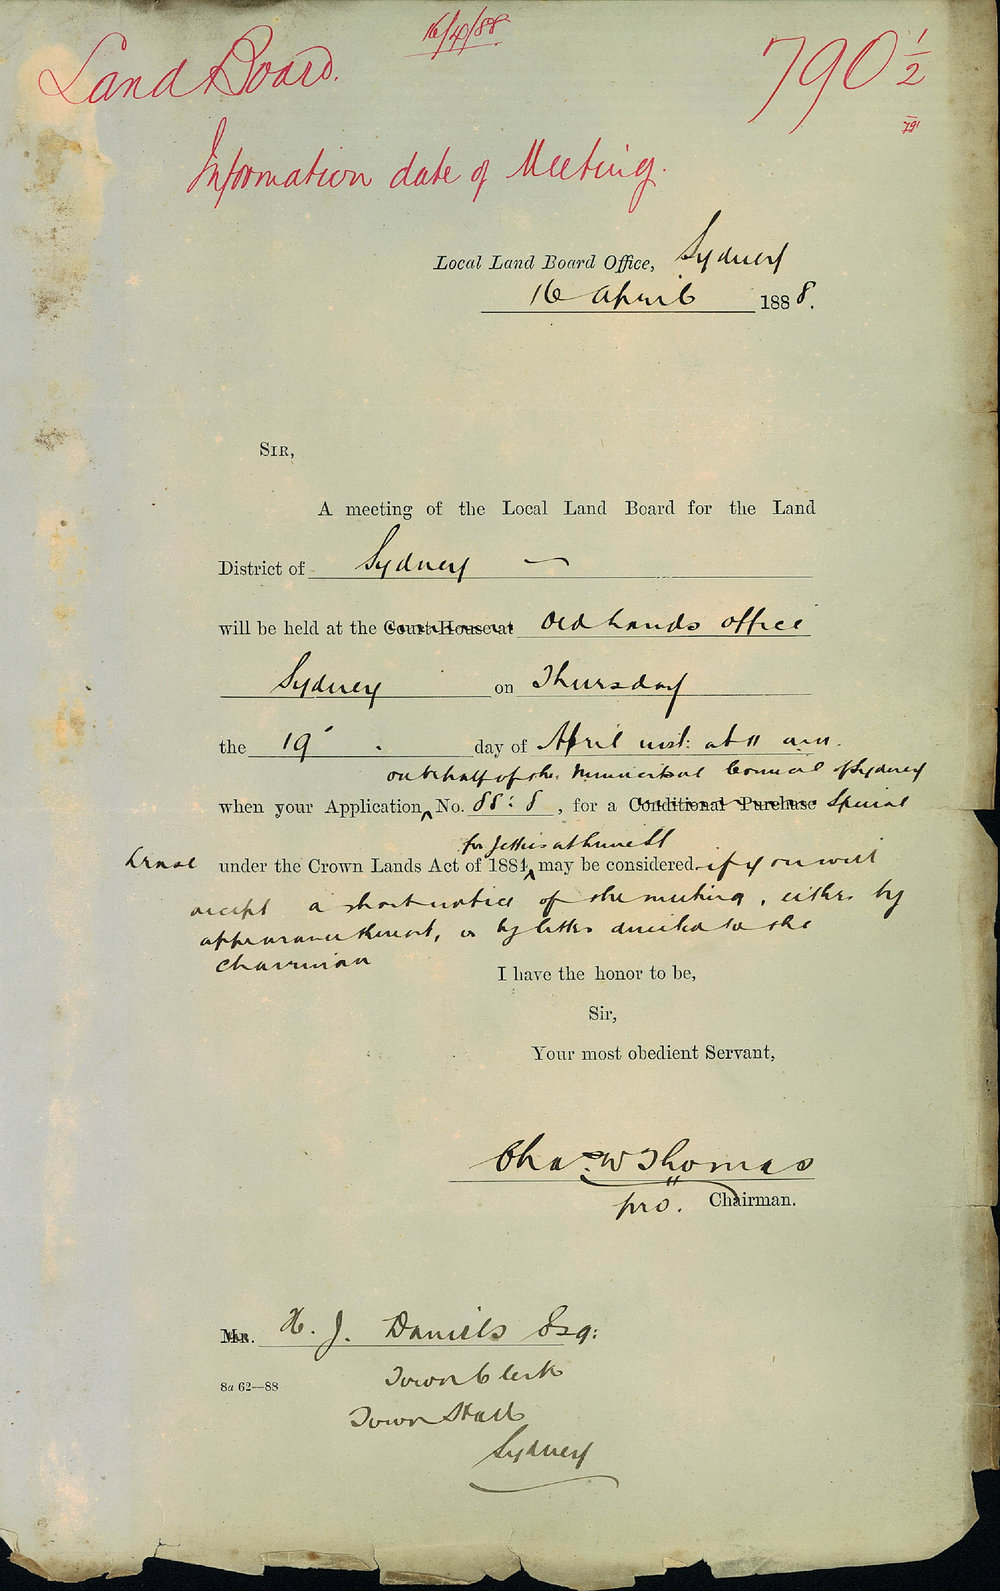 16/4/88
Land Board.
790 1/2
791
Information date of Meeting.
Local Land Board Office, Sydney
16 April 1888.
SIR,
A meeting of the Local Land Board for the Land
District of Sydney
will be held at the Court-House at Old Lands Office
Sydney on Thursday
the 19 day of April inst: at 11 am.
on behalf of the Municipal Council of Sydney
when your Application No. 88:8, for a Conditional Purchase Special
for Jetties at
Lease under the Crown Lands Act of 1884, may be considered. if you will
accept a short notice of the meeting, either by
appearance thereat, or by letter directed to the
Chairman
I have the honor to be,
Sir,
Your most obedient Servant,
Chas. W Thomas
pro. Chairman.
MR. H. J. Daniels Esq:
8a 62—88
Town Clerk
Town Hall
Sydney